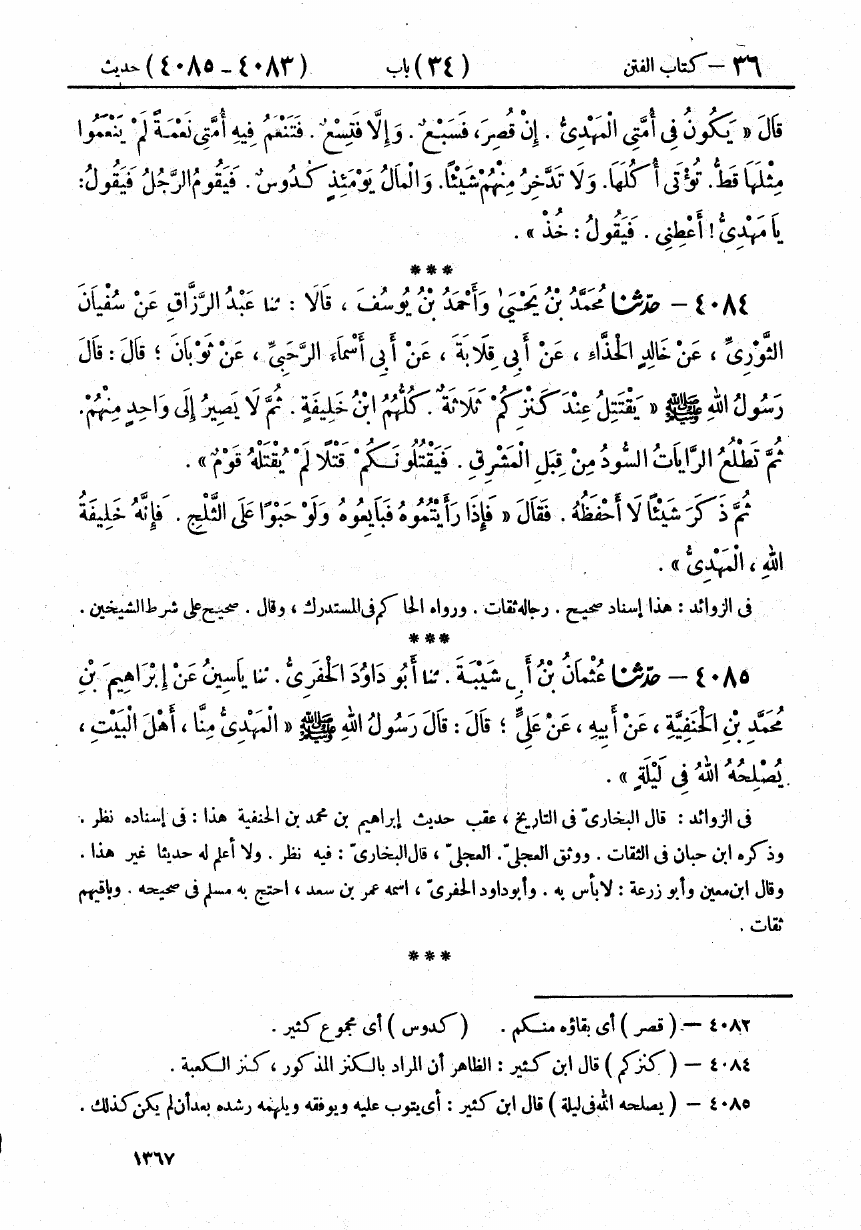 ٣٦ – كتاب الفتن (٣٤) باب (٤٠٨٣ – ٤٠٨٥) حديث
قَالَ « يَكُونُ فِى أُمَّتِى الْمَهْدِىُّ . إِنْ قُصِرَ، فَسَبْعٌ . وَإِلَّا فَتِسْعٌ . فَتَنْعَمُ فِيهِ أُمَّتِى نَعْمَةً لَمْ يَنْعَمُوا
مِثْلَهَا قَطُّ. تُؤْتَى أُكُلَهَا. وَلَا تَدَّخِرُ مِنْهُمْ شَيْئًا. وَالْمَالُ يَوْمَئِذٍ كُدُوسٌ . فَيَقُومُ الرَّجُلُ فَيَقُولُ:
يَا مَهْدِىُّ ! أَعْطِنِى . فَيَقُولُ : خُذْ » .
***
٤٠٨٤ – حدّثنا مُحَمَّدُ بْنُ يَحْيَىٰ وَأَحْمَدُ بْنُ يُوسُفَ ، قَالَا : ثنا عَبْدُ الرَّزَّاقِ عَنْ سُفْيَانَ
الثَّوْرِىِّ ، عَنْ خَالِدٍ الْحَذَّاءِ ، عَنْ أَبِى قِلَابَةَ ، عَنْ أَبِى أَسْمَاءَ الرَّحَبِىِّ ، عَنْ ثَوْبَانَ ؛ قَالَ : قَالَ
رَسُولُ اللهِ ﷺ « يَقْتَتِلُ عِنْدَ كَنْزِكُمْ ثَلَاثَةٌ . كُلُّهُمُ ابْنُ خَلِيفَةٍ . ثُمَّ لَا يَصِيرُ إِلَى وَاحِدٍ مِنْهُمْ.
ثُمَّ تَطْلُعُ الرَّايَاتُ السُّودُ مِنْ قِبَلِ الْمَشْرِقِ . فَيَقْتُلُونَكُمْ قَتْلًا لَمْ يُقْتَلْهُ قَوْمٌ » .
ثُمَّ ذَكَرَ شَيْئًا لَا أَحْفَظُهُ . فَقَالَ « فَإِذَا رَأَيْتُمُوهُ فَبَايِعُوهُ وَلَوْ حَبْوًا عَلَى الثَّلْجِ . فَإِنَّهُ خَلِيفَةُ
اللهِ ، الْمَهْدِىُّ » .
فى الزوائد : هذا إسناد صحيح . رجاله ثقات . ورواه الحاكم فى المستدرك ، وقال . صحيح على شرط الشيخين .
***
٤٠٨٥ – حدّثنا عُثْمَانُ بْنُ أَبِى شَيْبَةَ . ثنا أَبُو دَاوُدَ الْحَفَرِىُّ . ثنا يَاسِينُ عَنْ إِبْرَاهِيمَ بْنِ
مُحَمَّدِ بْنِ الْحَنَفِيَّةِ ، عَنْ أَبِيهِ ، عَنْ عَلِىٍّ ؛ قَالَ : قَالَ رَسُولُ اللهِ ﷺ « الْمَهْدِىُّ مِنَّا ، أَهْلَ الْبَيْتِ ،
يُصْلِحُهُ اللهُ فِى لَيْلَةٍ » .
فى الزوائد : قال البخارىّ فى التاريخ ، عقب حديث إبراهيم بن محمد بن الحنفية هذا : فى إسناده نظر .
وذكره ابن حبان فى الثقات . ووثق العجلىّ . العجلىّ ، قال البخارىّ : فيه نظر . ولا أعلم له حديثا غير هذا .
وقال ابن معين وأبو زرعة : لا بأس به . وأبو داود الحفرىّ ، اسمه عمر بن سعد ، احتج به مسلم فى صحيحه . وباقيهم
ثقات .
***
٤٠٨٣ – ( قصر ) أى بقاؤه منكم . ( كدوس ) أى مجموع كثير .
٤٠٨٤ – ( كنزكم ) قال ابن كثير : الظاهر أن المراد بالكنز المذكور ، كنز الكعبة .
٤٠٨٥ – ( يصلحه الله فى ليلة ) قال ابن كثير : أى يتوب عليه ويوفقه ويلهمه رشده بعد أن لم يكن كذلك .
١٣٦٧